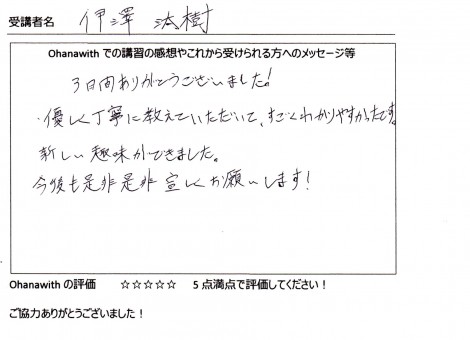 受講者名 伊澤 汰樹
Ohanawith での講習の感想やこれから受けられる方へのメッセージ等
3日間ありがとうございました!
優しく丁寧に教えていただいて、すごくわかりやすかったです。
新しい趣味ができました。
今後も是非是非宜しくお願いします!
Ohanawith の評価 ☆☆☆☆☆ 5 点満点で評価してください！
ご協力ありがとうございました！